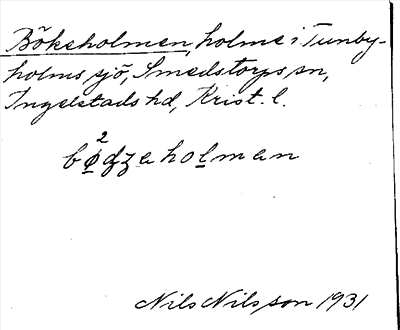 Bökeholmen, holme i Tunby-
holms sjö, Smedstorps sn,
Ingelstads hd, Krist. l.
2
bødzaholman
Nils Nilsson 1931